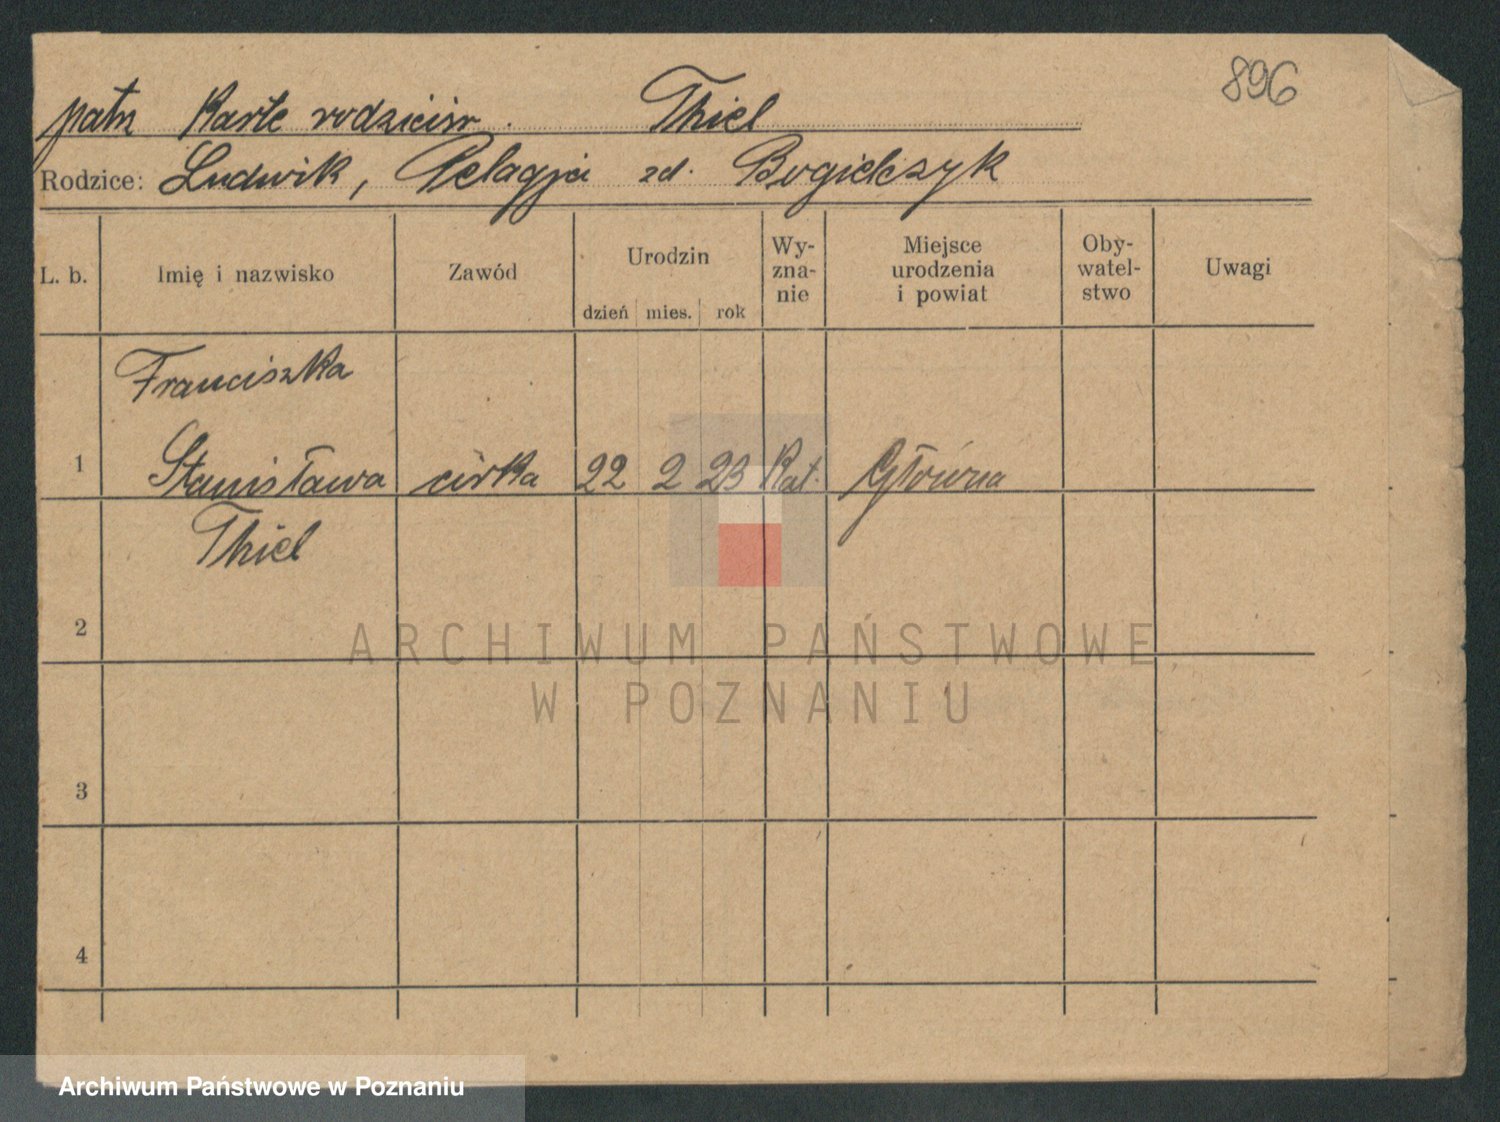 896
patrz Karte rodziców. Thiel
Rodzice: Ludwik, Pelagja zd. Bogielczyk
L. b. Imię i nazwisko Zawód Urodzin dzień mies. rok Wy-zna-nie Miejsce urodzenia i powiat Oby-watel-stwo Uwagi
Franciszka
1 Stanisława córka 22 2 23 Kat. Główna
Thiel
2
ARCHIWUM PAŃSTWOWE
W POZNANIU
3
4
Archiwum Państwowe w Poznaniu